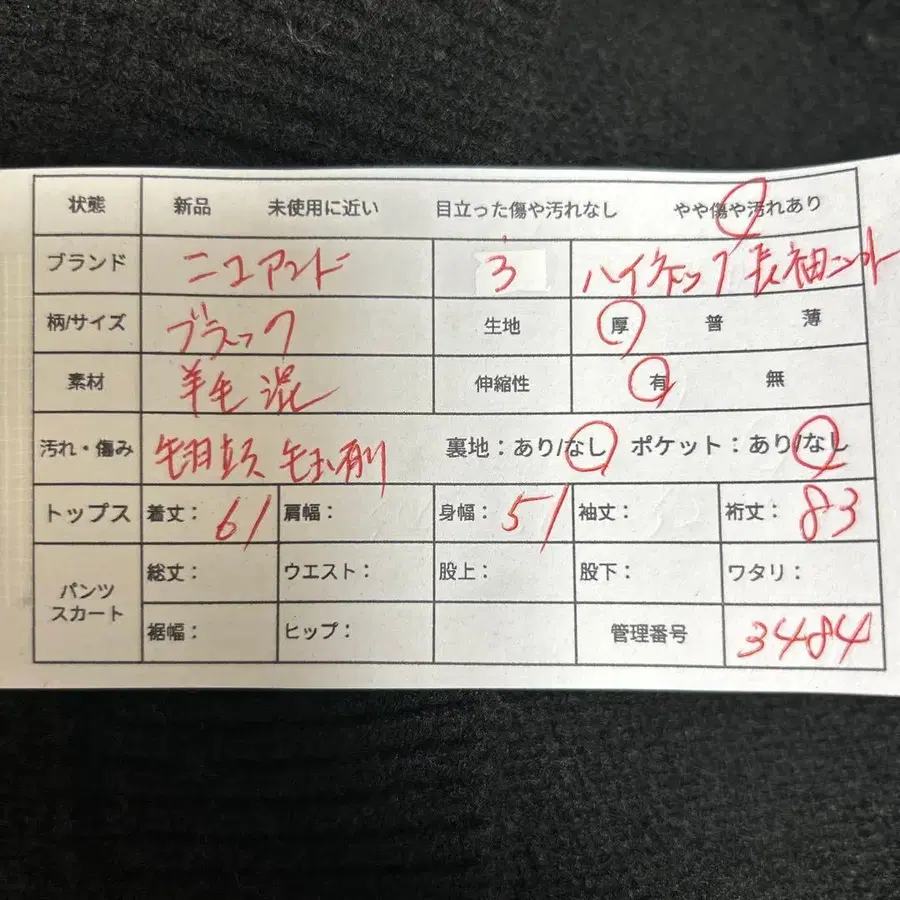 状態 新品 未使用に近い 目立った傷や汚れなし やや傷や汚れあり
ブランド ニコアンド 3 ハイネック 長袖ニット
柄/サイズ ブラック 生地 厚 普 薄
素材 羊毛 混 伸縮性 有 無
汚れ・傷み 毛羽立ち 毛玉有り 裏地：あり/なし ポケット：あり/なし
トップス 着丈：61 肩幅： 身幅：51 袖丈： 裄丈：83
パンツ スカート 総丈： ウエスト： 股上： 股下： ワタリ：
裾幅： ヒップ： 管理番号 3484